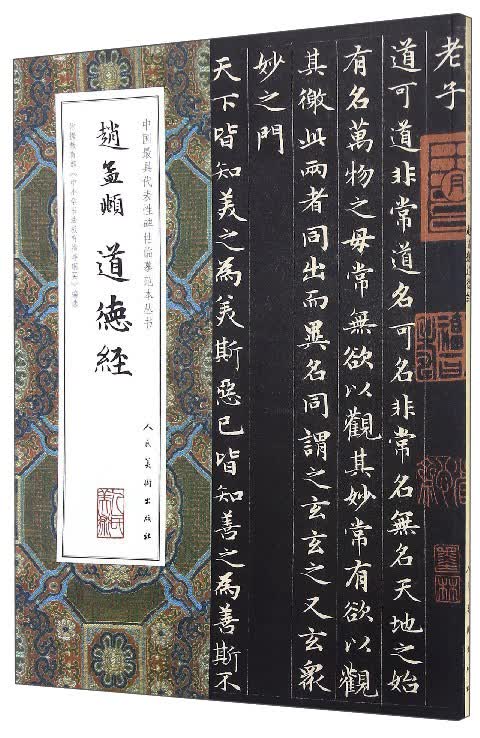 老子
道可道非常道名可名非常名無名天地之始
有名萬物之母常無欲以觀其妙常有欲以觀
其徼此兩者同出而異名同謂之玄玄之又玄衆
妙之門
天下皆知美之為美斯惡已皆知善之為善斯不
中国最具代表性碑帖临摹范本丛书
趙孟頫 道德經
依据教育部《中小学书法教育指导纲要》编选
人民美術出版社
墨林